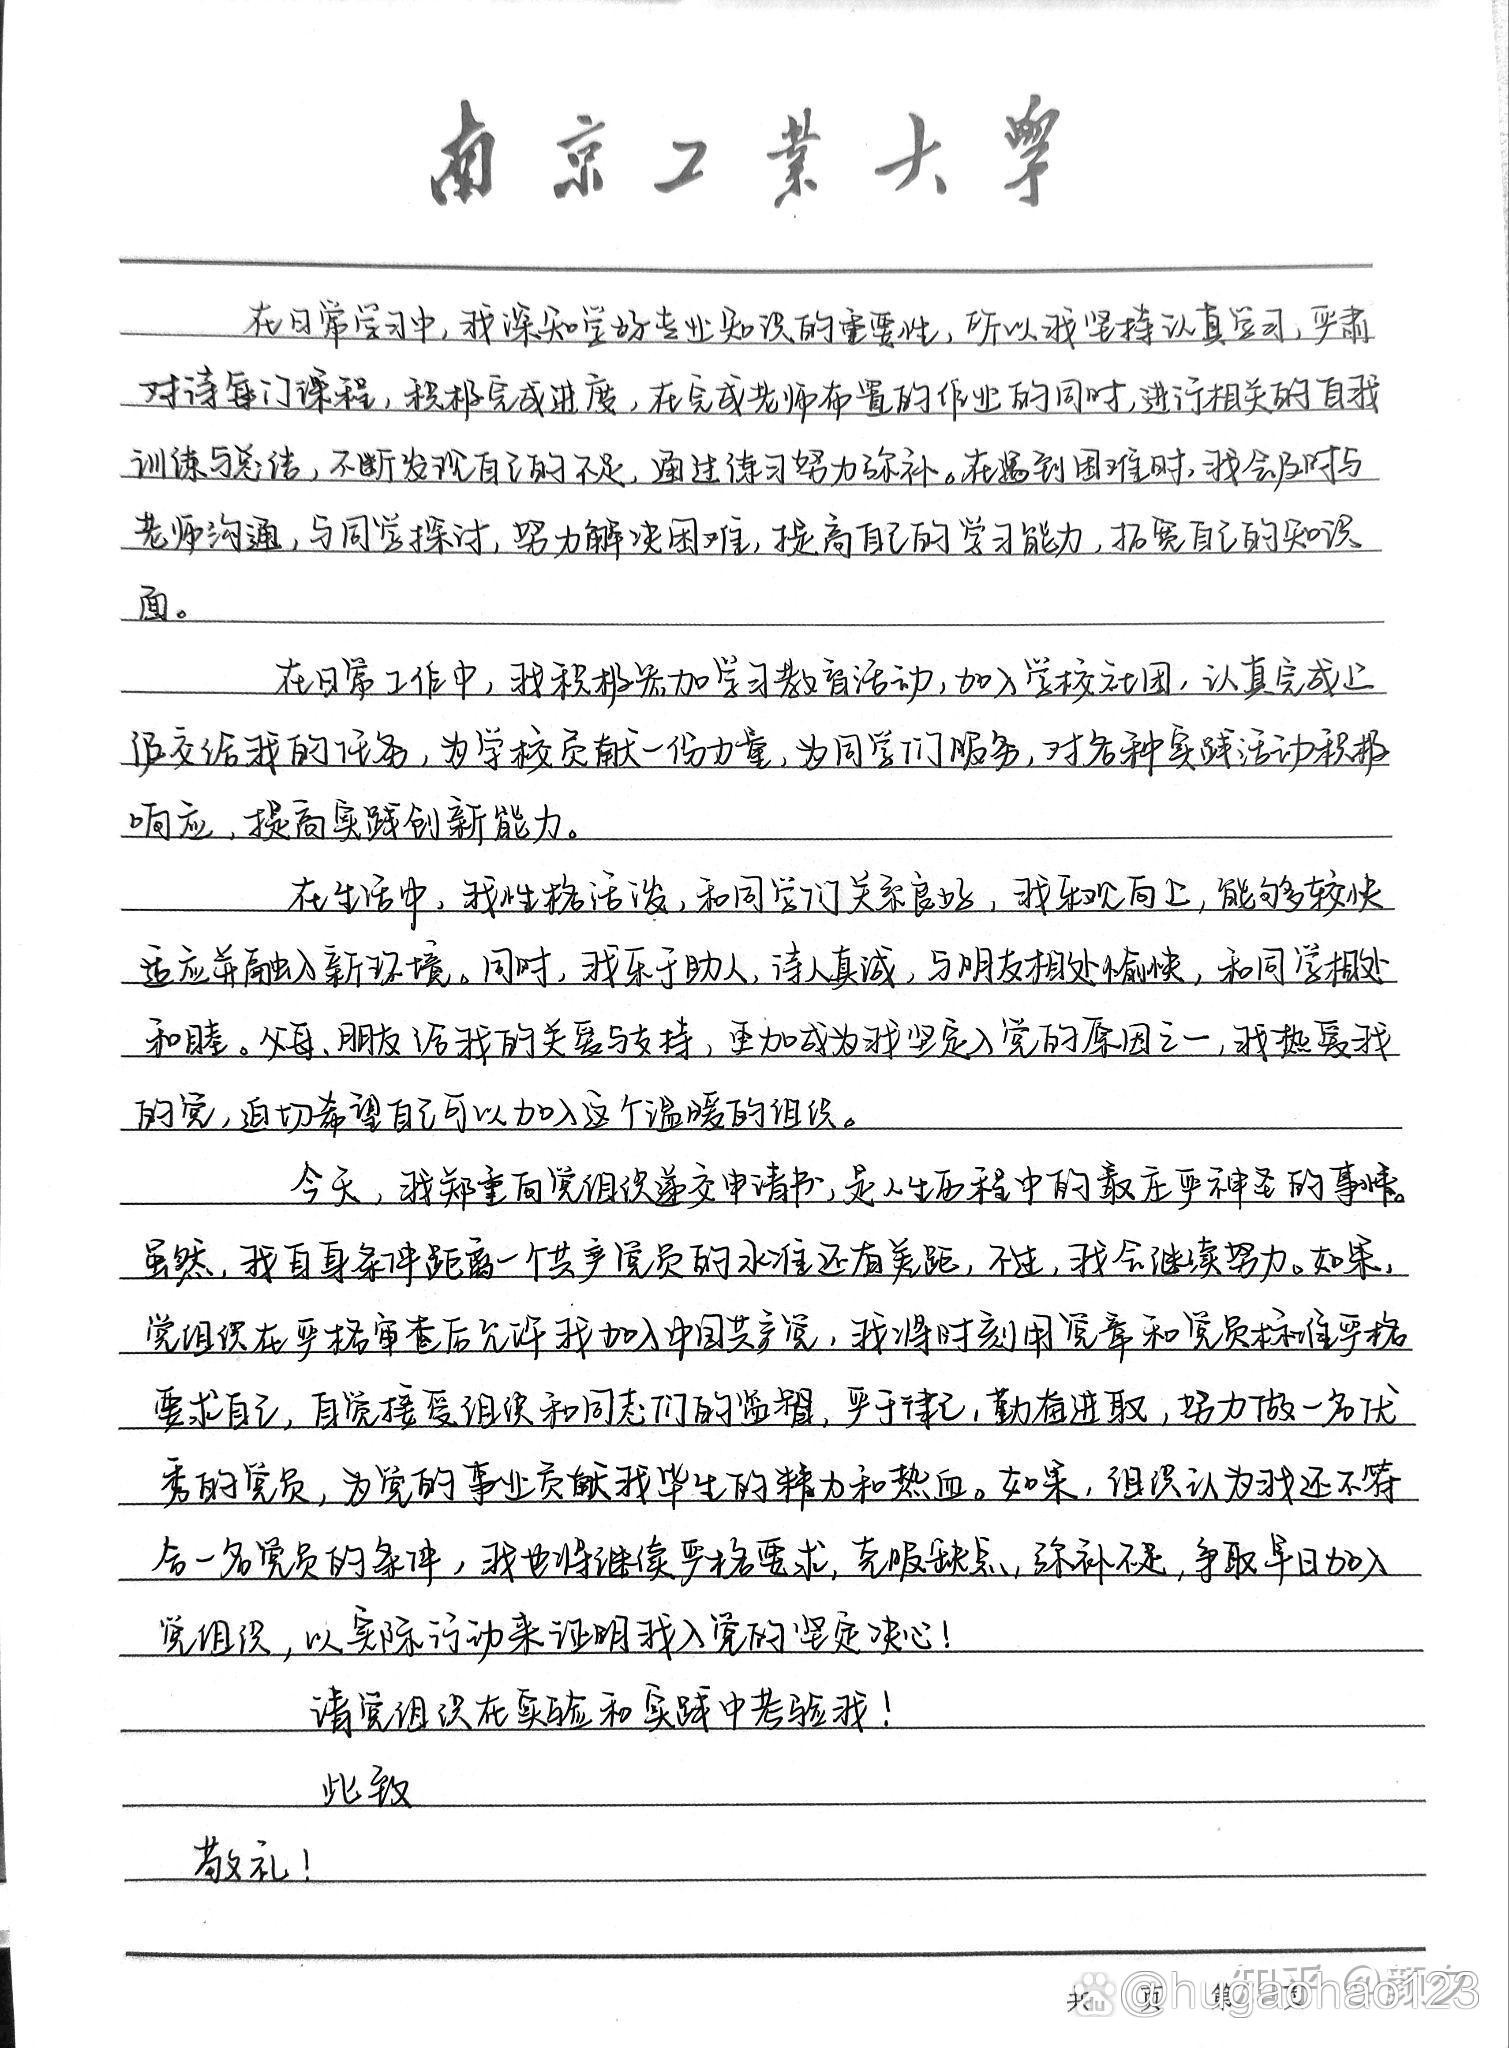 南京工业大学
在日常学习中，我深知学好专业知识的重要性，所以我坚持认真学习，严肃
对待每门课程，积极完成进度，在完成老师布置的作业的同时，进行相关的自我
训练与总结，不断发现自己的不足，通过练习努力弥补。在遇到困难时，我会及时与
老师沟通，与同学探讨，努力解决困难，提高自己的学习能力，拓宽自己的知识
面。
在日常工作中，我积极参加学习教育活动，加入学校社团，认真完成上
级交给我的任务，为学校贡献一份力量，为同学们服务，对各种实践活动积极
响应，提高实践创新能力。
在生活中，我性格活泼，和同学们关系良好，我乐观向上，能够较快
适应并融入新环境。同时，我乐于助人，待人真诚，与朋友相处愉快，和同学相处
和睦。父母、朋友给我的关爱与支持，更加成为我坚定入党的原因之一，我热爱我
的党，迫切希望自己可以加入这个温暖的组织。
今天，我郑重向党组织递交申请书，是人生历程中的最庄严神圣的事情。
虽然，我自身条件距离一个共产党员的水准还有差距，不过，我会继续努力。如果，
党组织在严格审查后允许我加入中国共产党，我将时刻用党章和党员标准严格
要求自己，自觉接受组织和同志们的监督，严于律己，勤奋进取，努力做一名优
秀的党员，为党的事业贡献我毕生的精力和热血。如果，组织认为我还不符
合一名党员的条件，我也将继续严格要求，克服缺点，弥补不足，争取早日加入
党组织，以实际行动来证明我入党的坚定决心！
请党组织在实验和实践中考验我！
此致
敬礼！
共 页 第 页
知乎 @颜夕
@hugaohao123